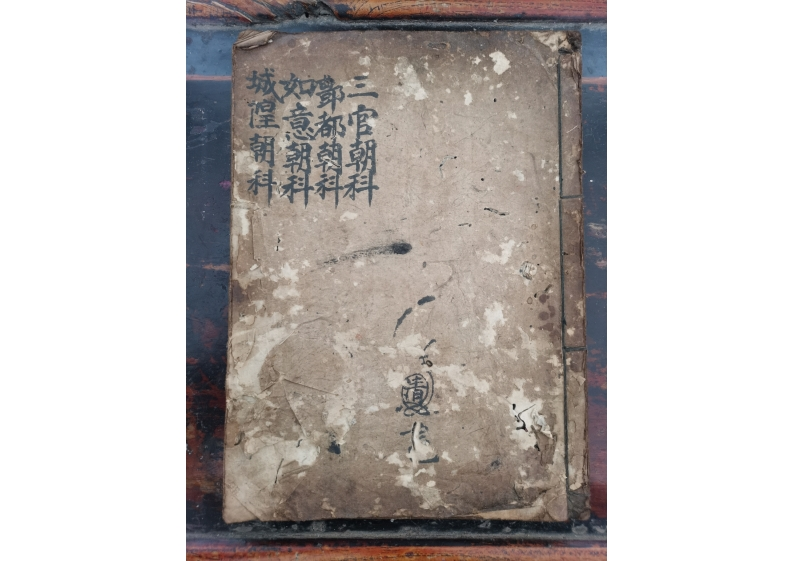 三官朝科
酆都朝科
如意朝科
城隍朝科